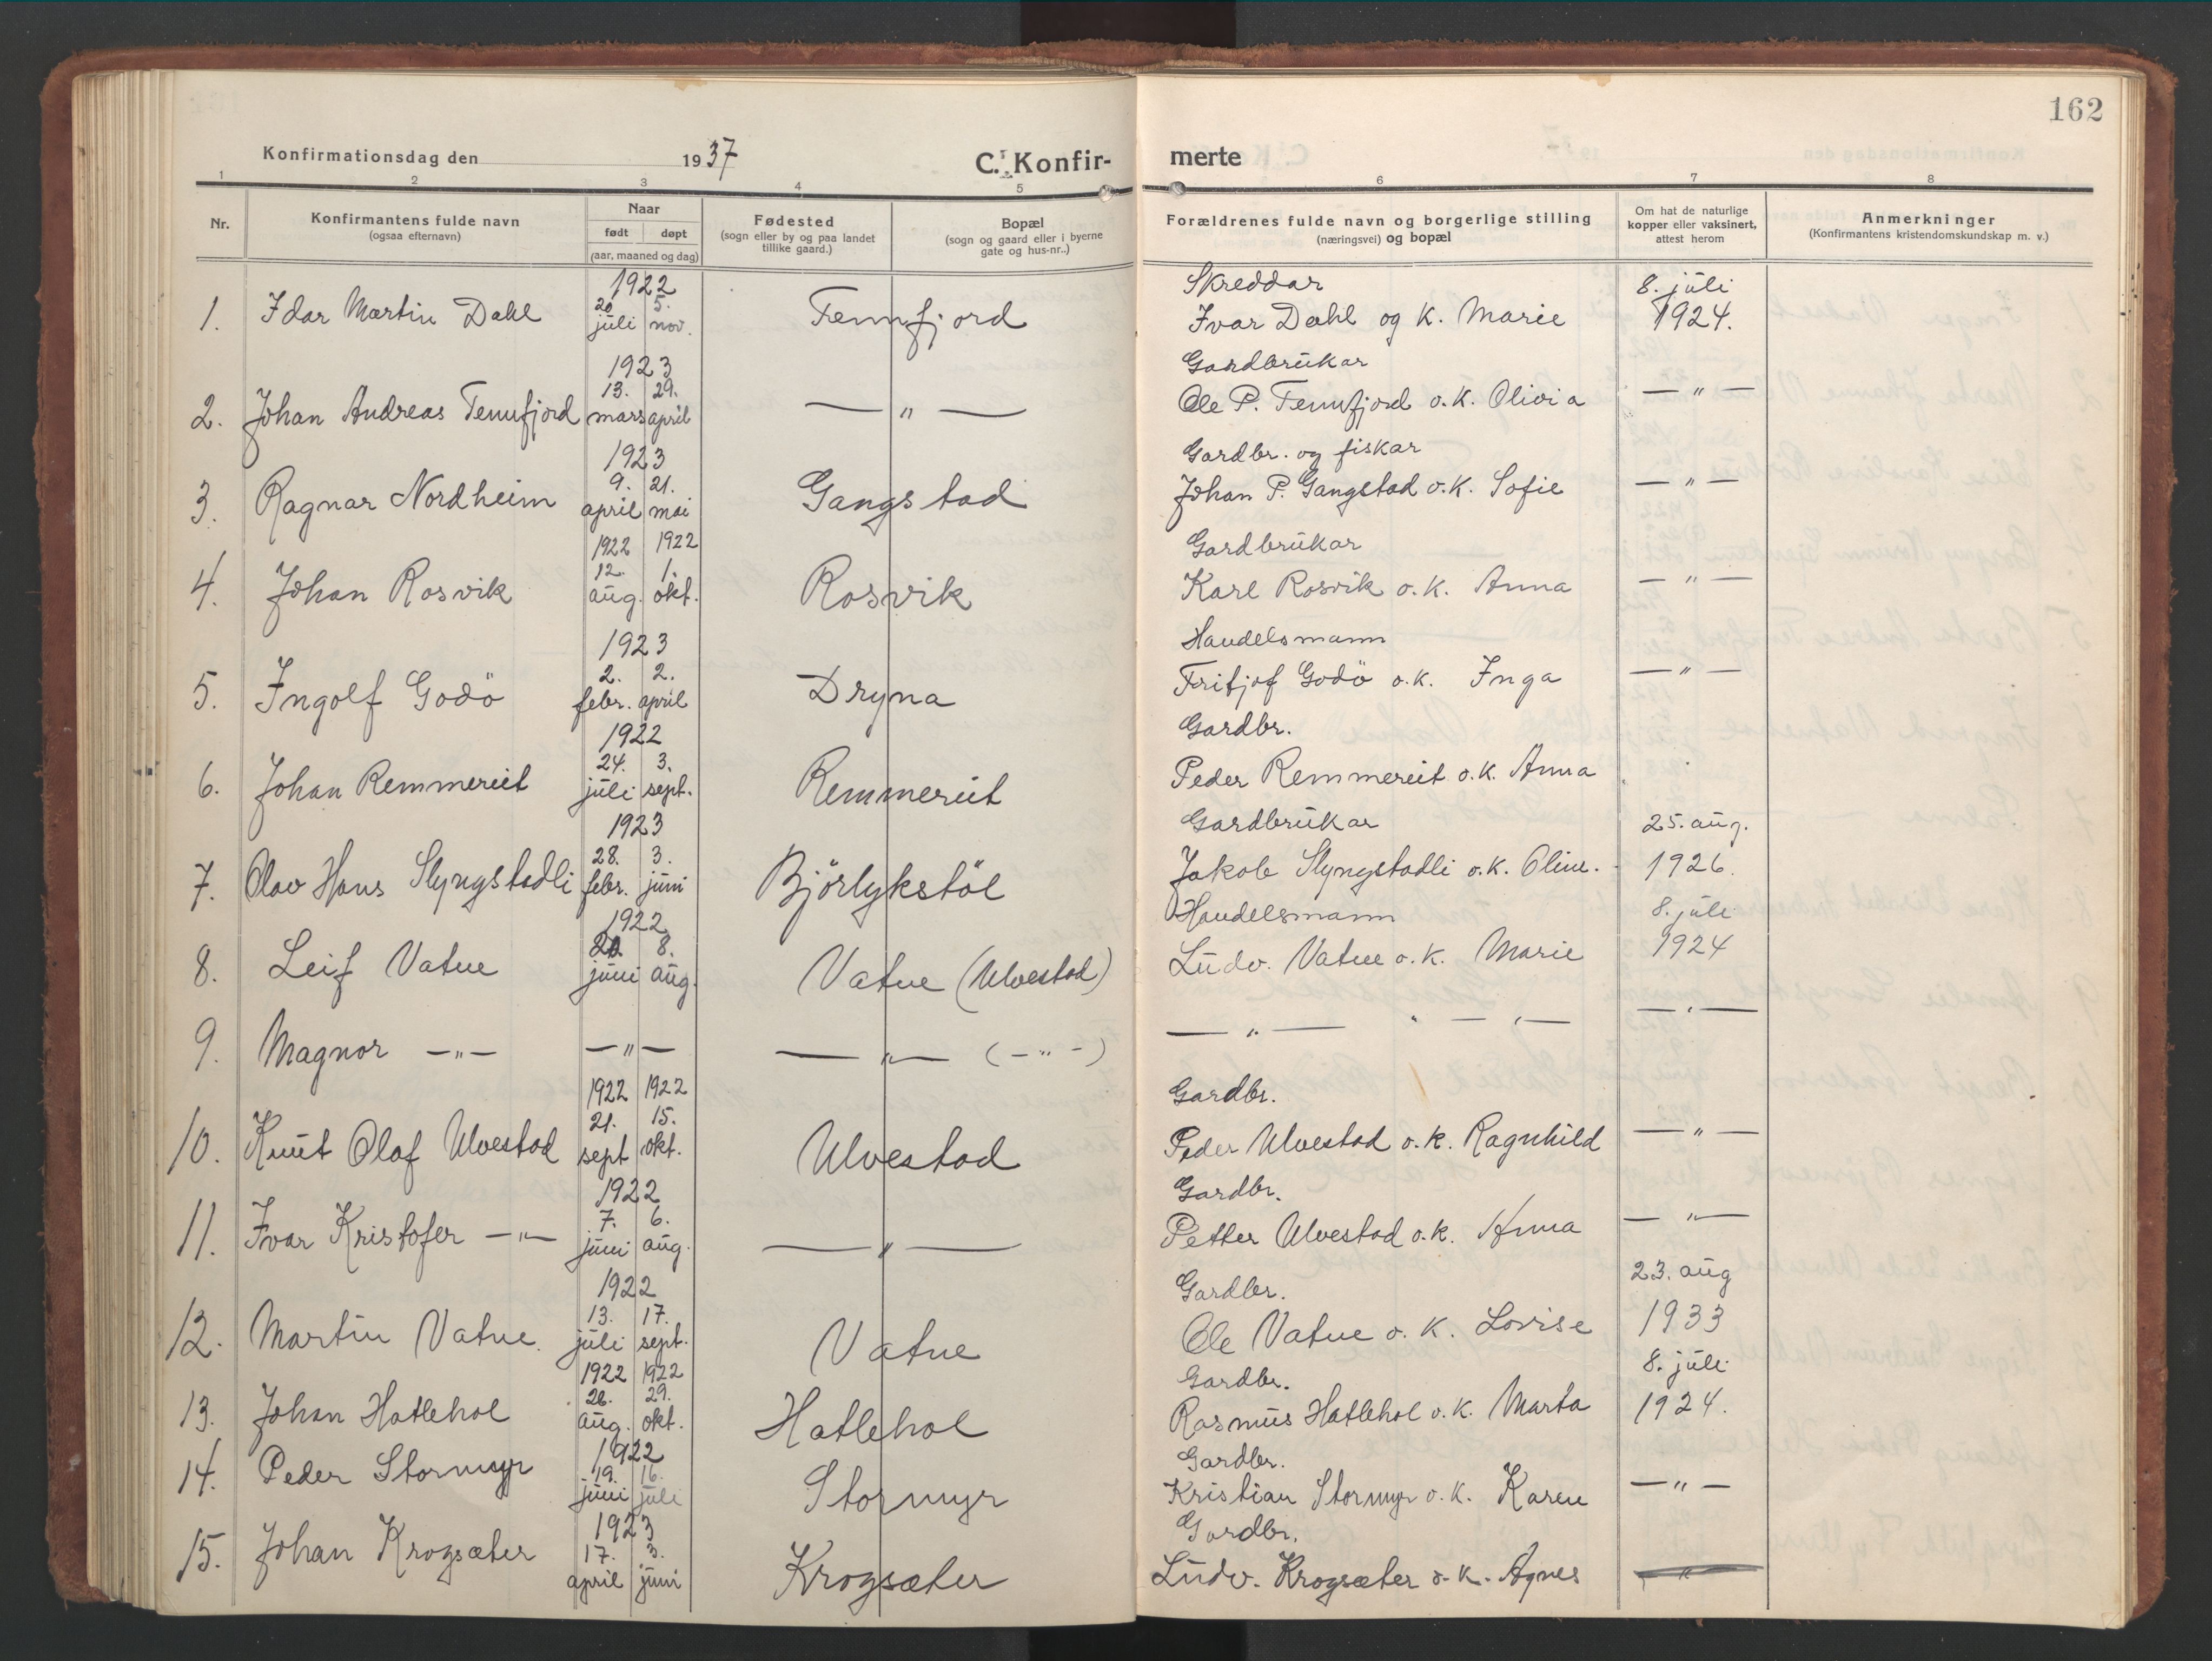 162
Konfirmationsdag den 1937 C. Konfir- merte
1 2 3 4 5 6 7 8
Nr. Konfirmantens fulde navn (ogsaa efternavn) Naar født døpt (aar, maaned og dag) Fødested (sogn eller by og paa landet tillike gaard.) Bopæl (sogn og gaard eller i byerne gate og hus-nr..) Forældrenes fulde navn og borgerlige stilling (næringsvei) og bopæl Om hat de naturlige kopper eller vaksinert, attest herom Anmerkninger (Konfirmantens kristendomskundskap m. v.)
1922 Skreddar 8. juli
1. Idar Martin Dahl 20 juli 5. nov. Tennfjord Ivar Dahl og k. Marie 1924.
1923 Gardbrukar
2. Johan Andreas Tennfjord 13. mars 29. april — " — Ole P. Tennfjord o.k. Olivia — " —
1923 Gardbr. og fiskar
3. Ragnar Nordheim 9. april 21. mai Gangstad Johan P. Gangstad o.k. Sofie — " —
1922 1922 Gardbrukar
4. Johan Rosvik 12. aug. 1. okt. Rosvik Karl Rosvik o.k. Anna — " —
1923 Handelsmann
5. Ingolf Godö 2. febr. 2. april Dryna Fritjof Godö o.k. Inga — " —
1922 Gardbr.
6. Johan Remmereit 24. juli 3. sept. Remmereit Peder Remmereit o.k. Anna
1923 Gardbrukar 25. aug.
7. Olav Hans Slyngstadli 28. febr. 3. juni Björlykstöl Jakob Slyngstadli o.k. Oline. 1926.
1922 Handelsmann 8. juli
8. Leif Vatne juni 8. aug. Vatne (Ulvestad) Ludv. Vatne o.k. Marie 1924
9. Magnor — " — — " — — " — (— " —) — " — — " — — " —
1922 1922 Gardbr.
10. Knut Olaf Ulvestad 21. sept 15. okt. Ulvestad Peder Ulvestad o.k. Ragnhild — " —
1922 Gardbr.
11. Ivar Kristofer — " — 7. juni 6. aug. — " — Petter Ulvestad o.k. Anna — " —
1922 Gardbr. 23. aug
12. Martin Vatne. 13. juli 17. sept. Vatne Ole Vatne o.k. Lovise 1933
1922 1922 Gardbr. 8. juli
13. Johan Hatlehol 26. aug. 29. okt. Hatlehol Rasmus Hatlehol o.k. Marta 1924.
1922 Gardbr.
14. Peder Stormyr 19. juni 16. juli Stormyr Kristian Stormyr o.k. Karen — " —
1923 Gardbr.
15. Johan Krogsæter 17. april 3. juni Krogsæter Ludv. Krogsæter o.k. Agnes — " —